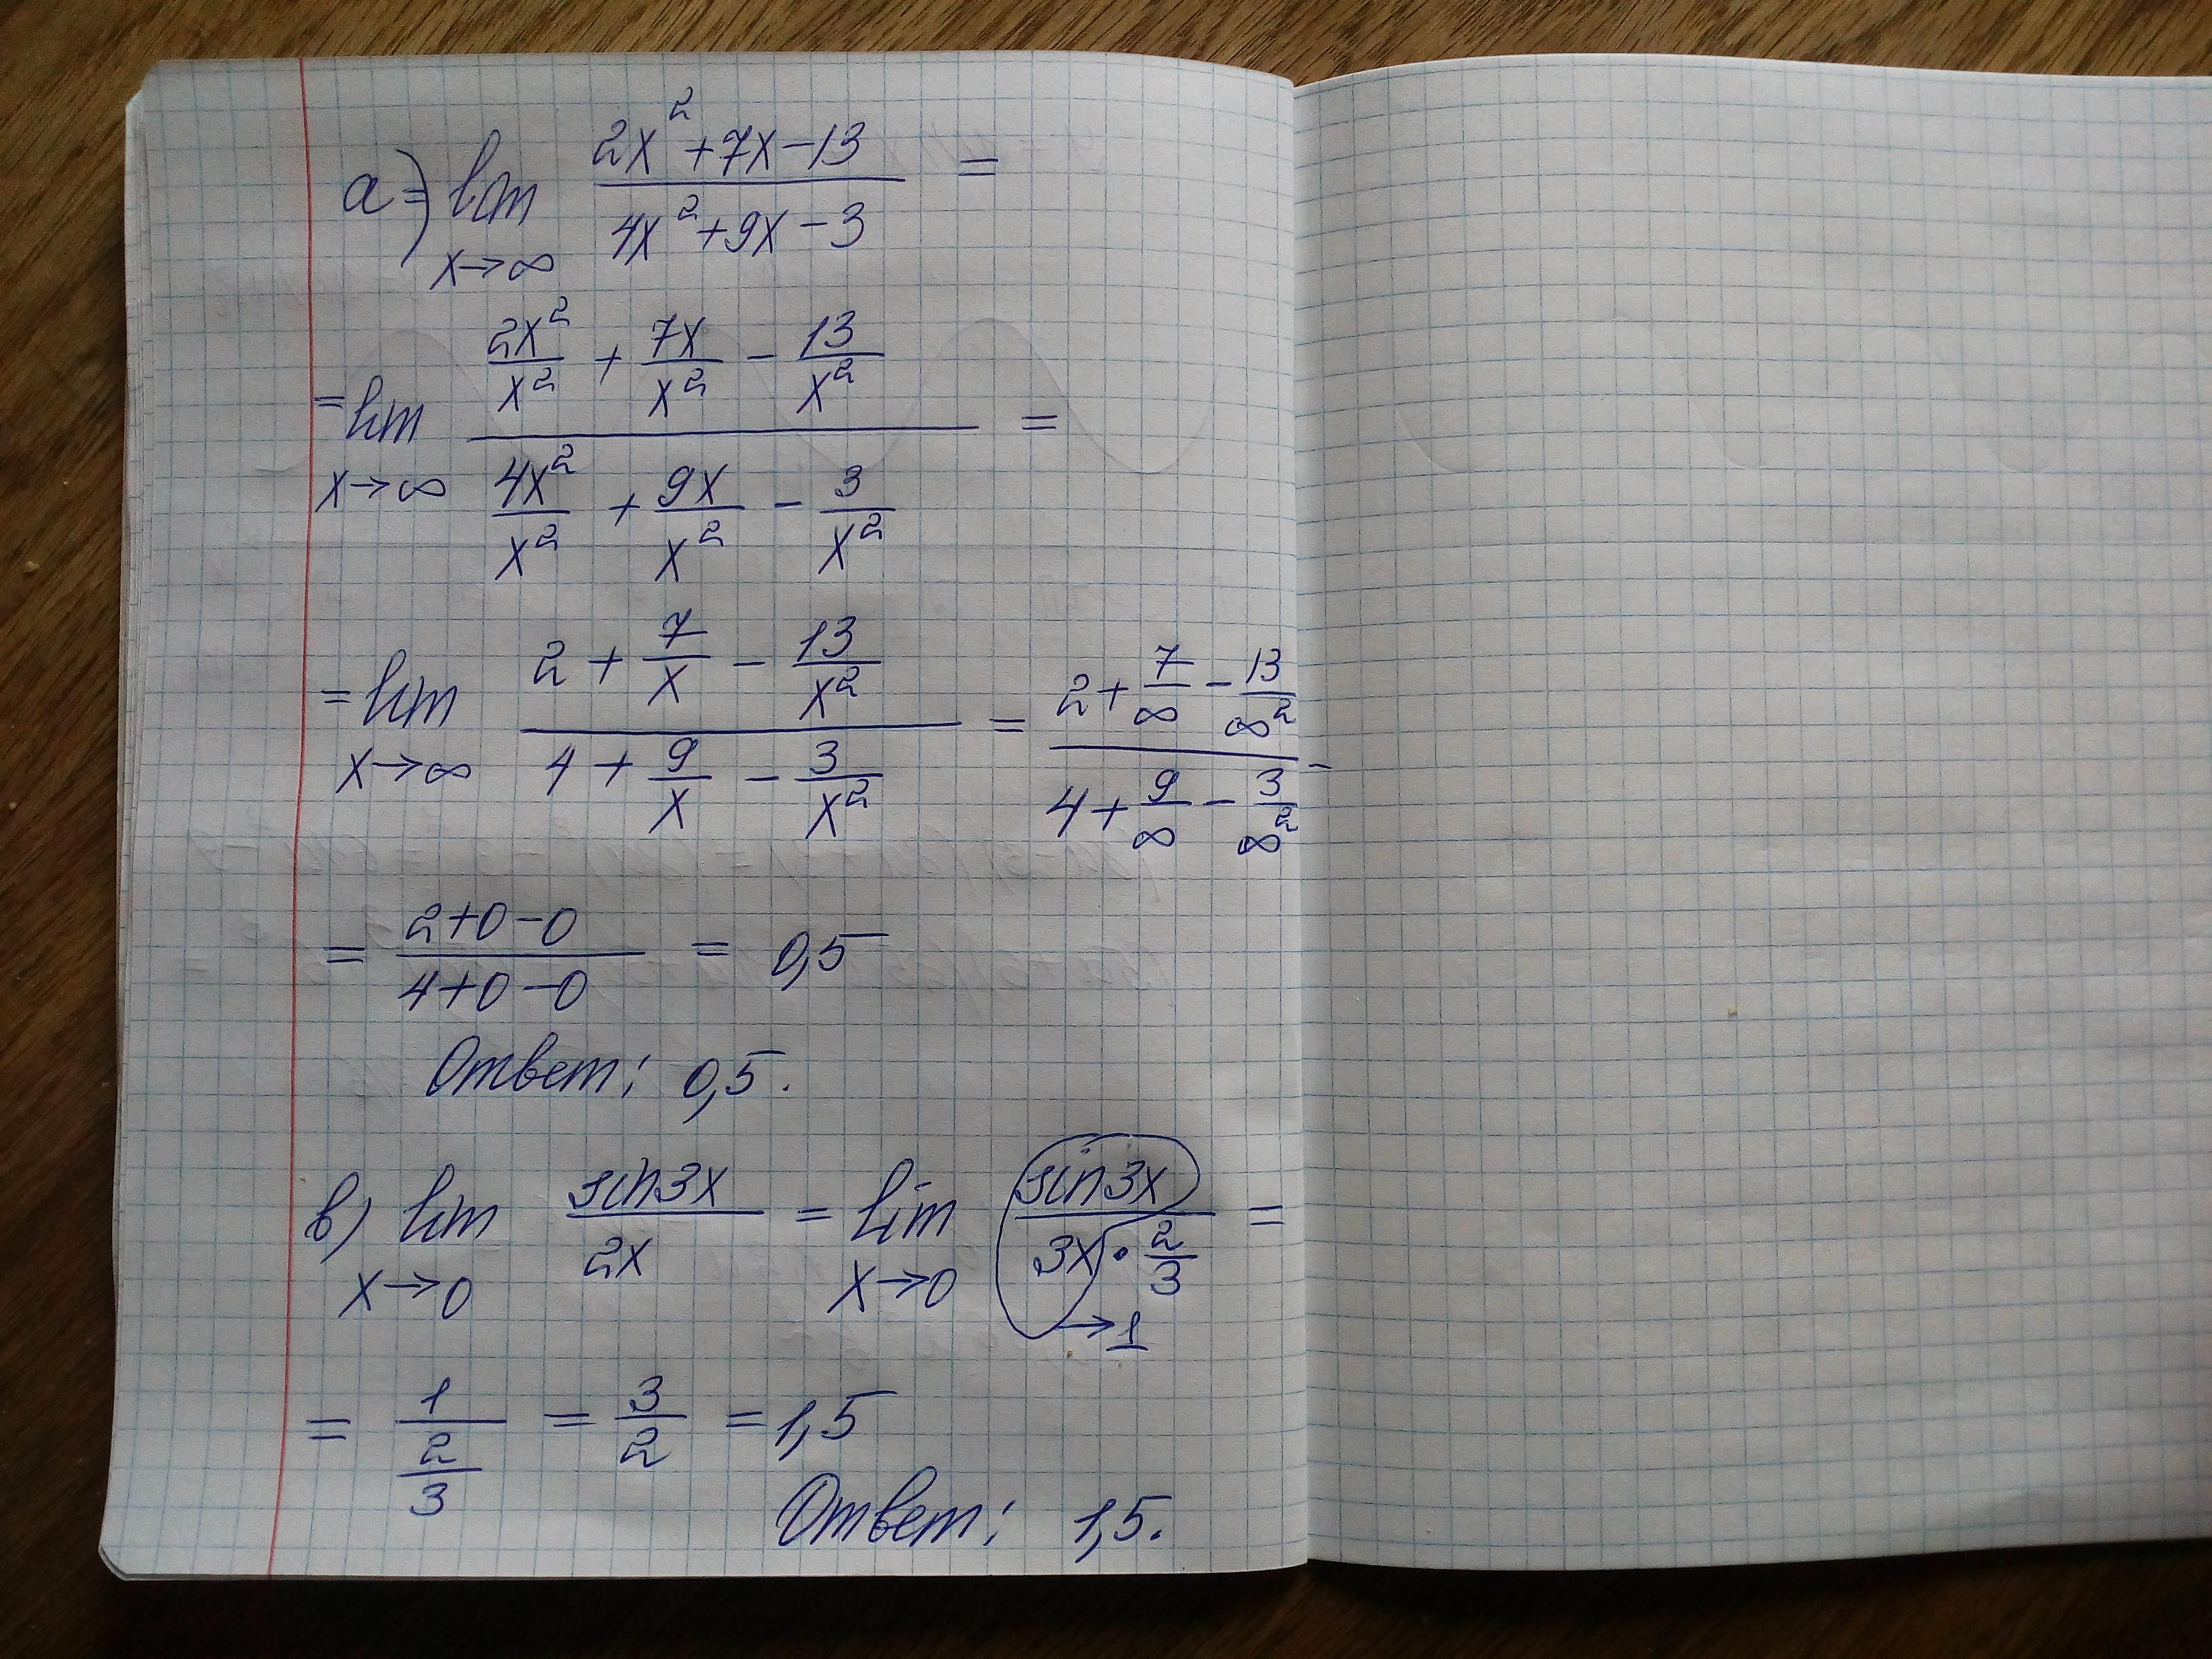 а) = lim x→∞ (2x² + 7x − 13)/(4x² + 9x − 3) =
= lim x→∞ (2x²/x² + 7x/x² − 13/x²)/(4x²/x² + 9x/x² − 3/x²) =
= lim x→∞ (2 + 7/x − 13/x²)/(4 + 9/x − 3/x²) = (2 + 7/∞ − 13/∞²)/(4 + 9/∞ − 3/∞²) =
= (2+0−0)/(4+0−0) = 0,5
Ответ: 0,5.
в) lim x→0 sin3x/2x = lim x→0 sin3x/(3x · 2/3) =
→1
= 1/(2/3) = 3/2 = 1,5
Ответ: 1,5.